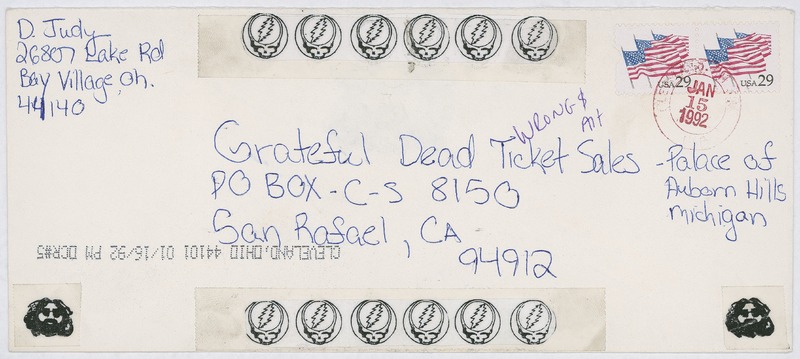 D. Judy
26807 Lake Rd
Bay Village, Oh.
44140
USA 29
USA 29
JAN
15
1992
WRONG $
Amt
Grateful Dead Ticket Sales
PO BOX - C-S 8150
San Rafael, CA
94912
- Palace of
Auborn Hills
Michigan
CLEVELAND, OHIO 44101 01/16/92 PM DCR#5